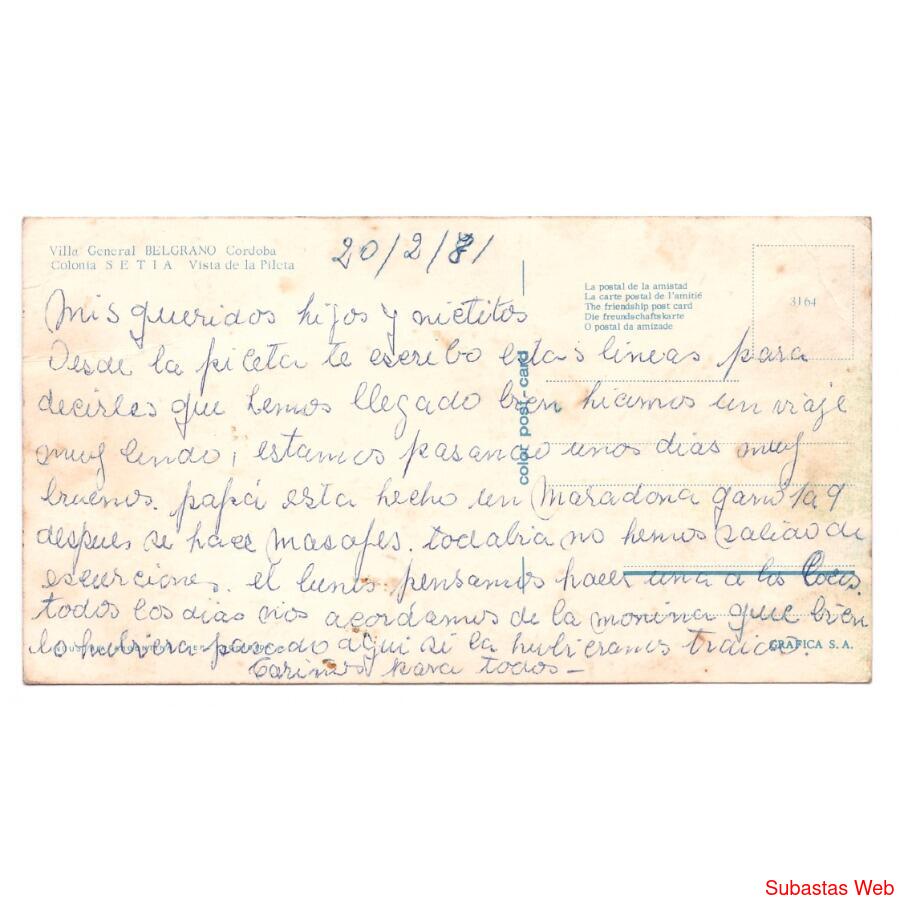 Villa General BELGRANO Cordoba
Colonia SETIA Vista de la Pileta
20/2/81
La postal de la amistad
La carte postal de l'amitié
The friendship post card
Die freundschaftskarte
O postal da amizade
3164
color post-card
Mis queridos hijos y nietitos
Desde la pileta te escribo estas lineas para
decirles que hemos llegado bien hicimos un viaje
muy lindo, estamos pasando unos dias muy
buenos. papá esta hecho un Maradona ganó 1a9
despues se hace masages. todabia no hemos salido de
escurciones. el lunes pensamos hacer una a los
todos los dias nos acordamos de la monina que bien
lo hubiera pasado aqui si la hubieramos traido.
GRAFICA S.A.
Cariños para todos -
Subastas Web